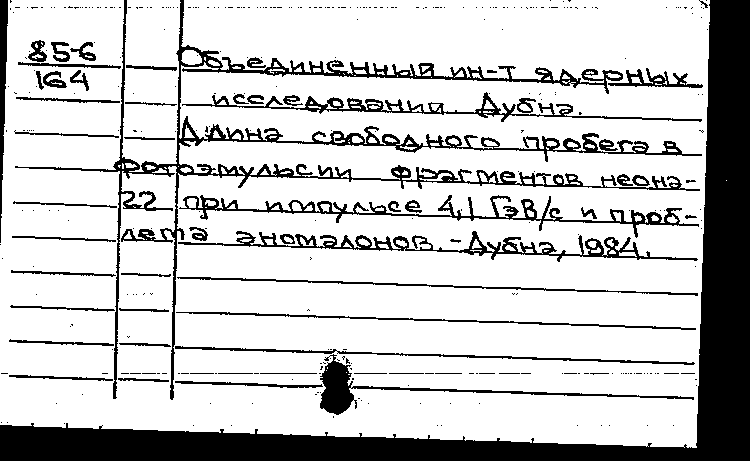 85-6
164
Объединенный ин-т ядерных
исследований. Дубна.
Длина свободного пробега в
фотоэмульсии фрагментов неона-
22 при импульсе 4,1 ГэВ/с и проб-
лема аномалонов. - Дубна, 1984.